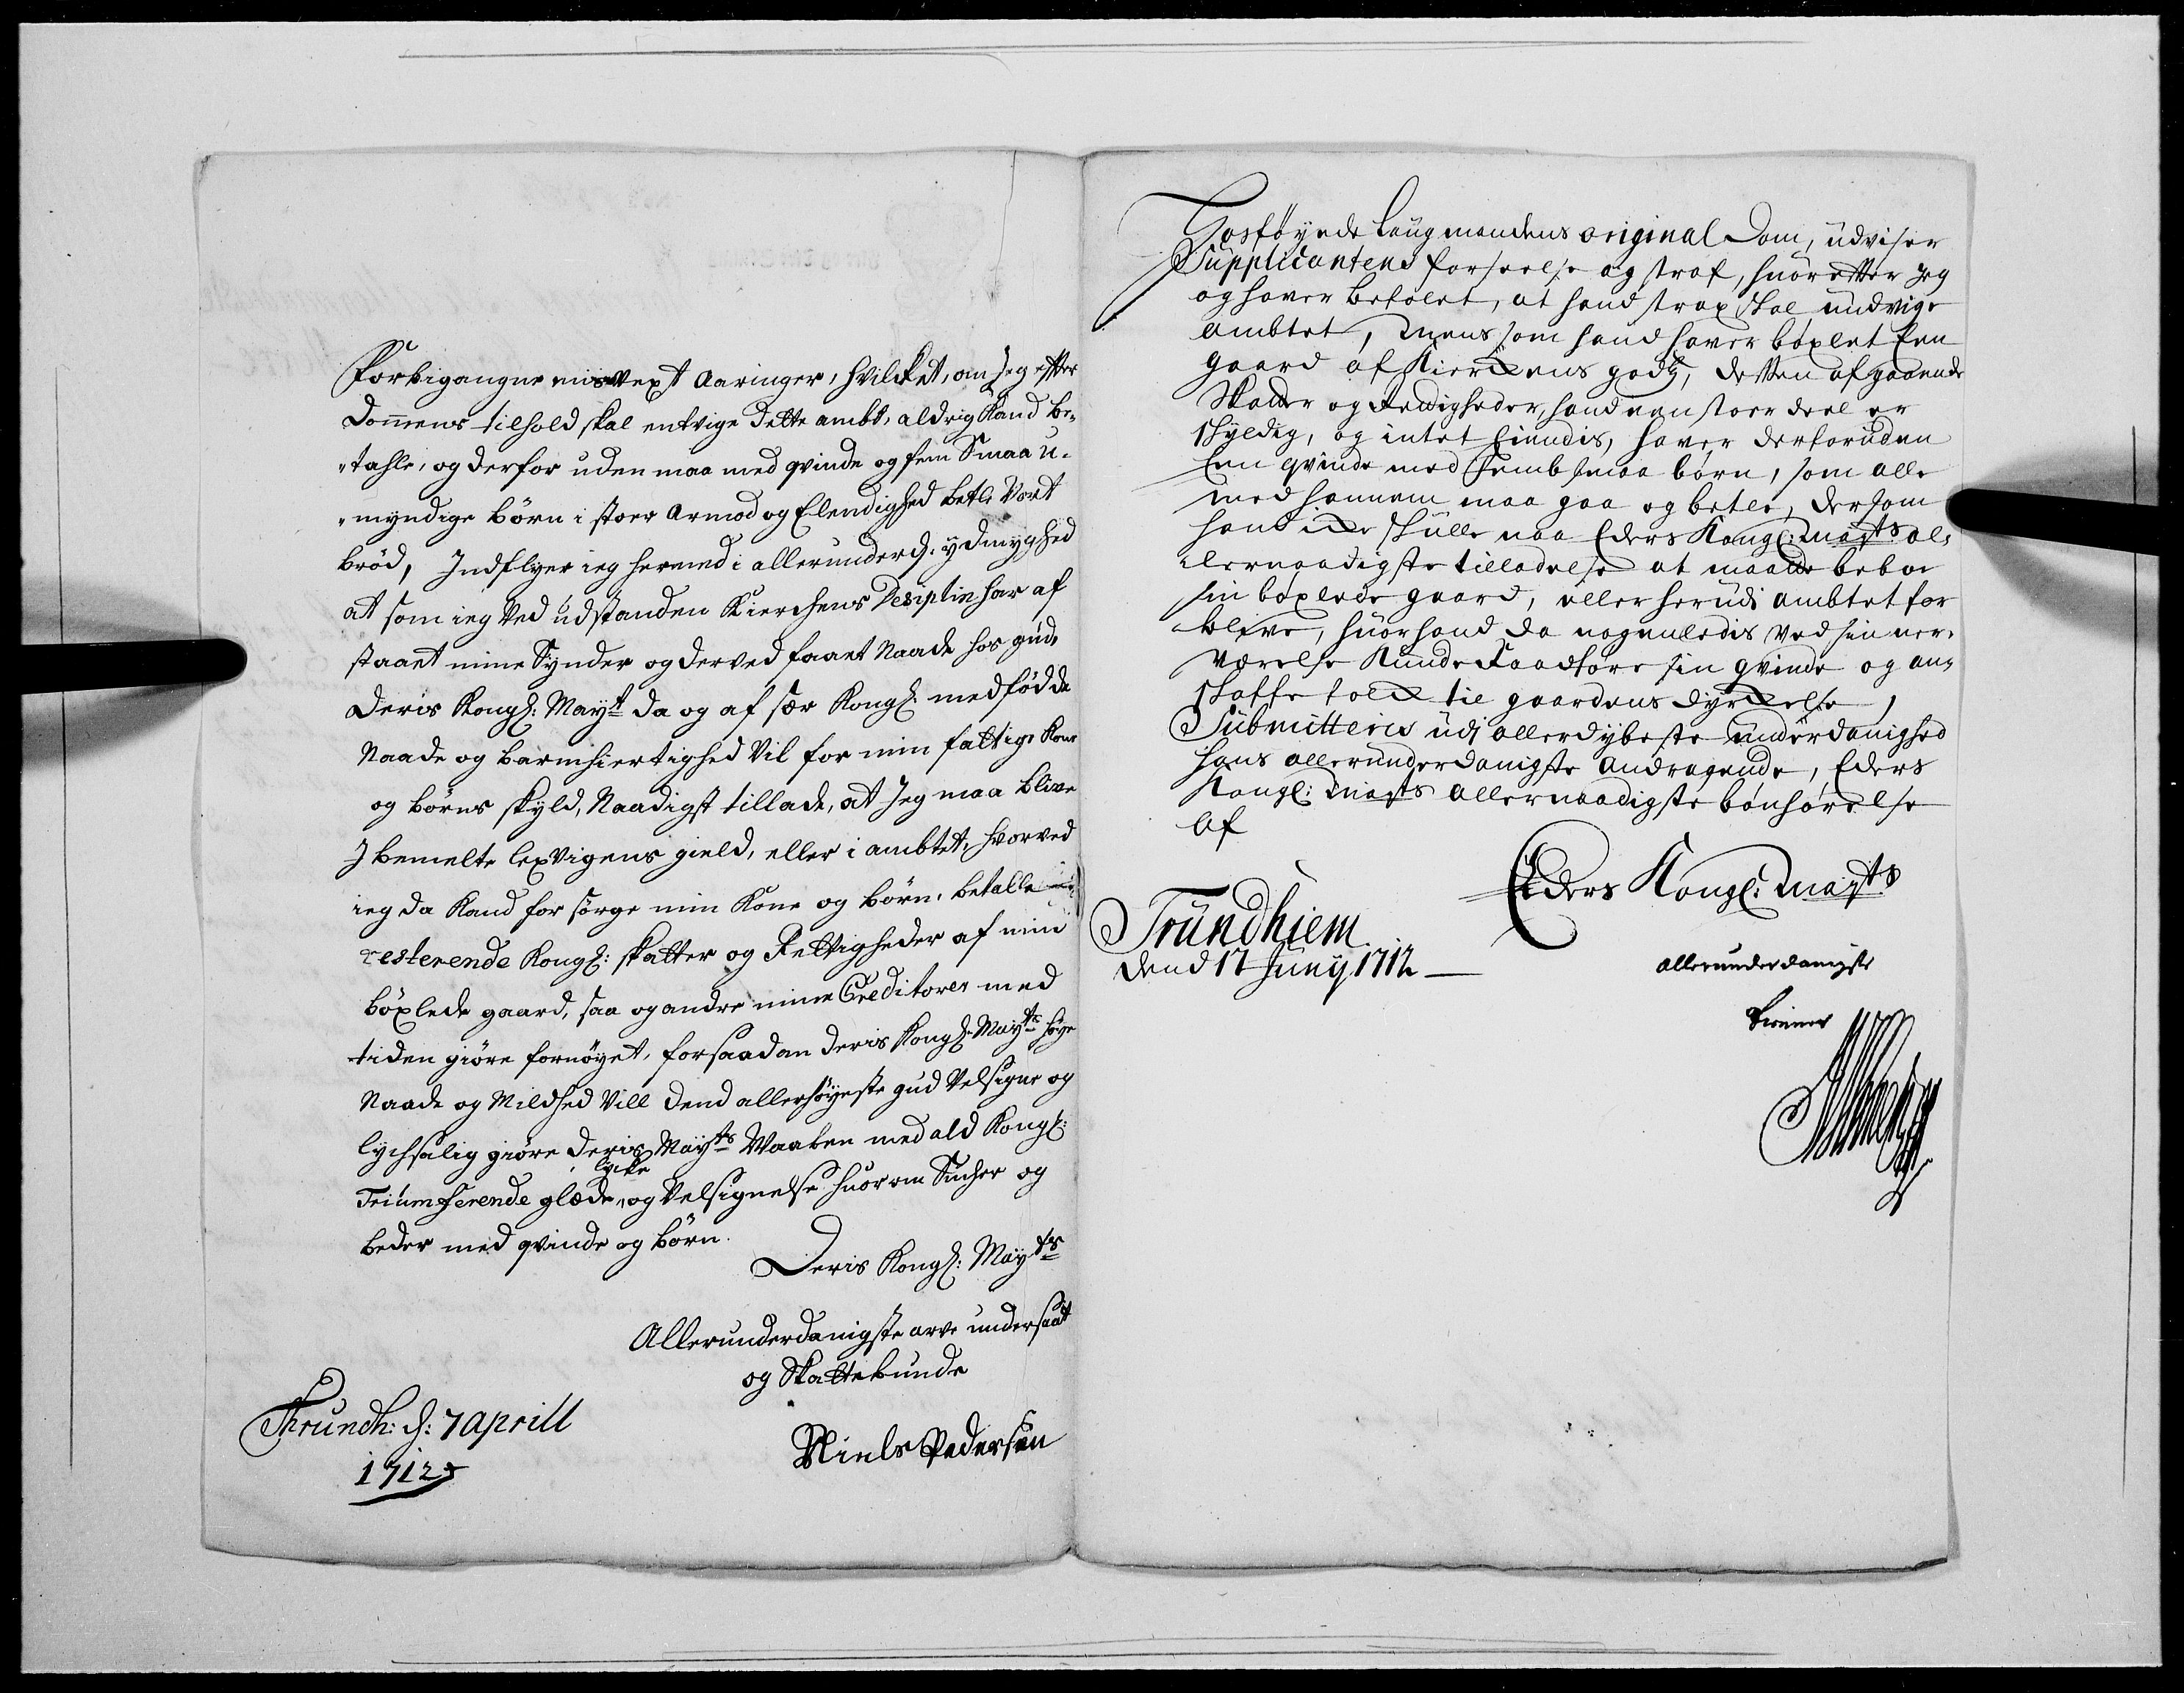 Forbigangne misvext Aaringer, hvilcket, om jeg efter
Dommens tilhold skal entvige dette ambt, aldrig kand be-
tahle, og derfor uden maa med qvinde og fem Smaa u-
myndige børn i stoer Armod og Elendighed betle Vort
brød, Indflyer ieg hermed i allerunderd: ydmyghed
at som ieg Ved udstanden Kierchens Desiplin har af
staaet mine Synder og derved faaet Naade hos gud,
Deris Kongl: Mayt da og af sær Kongl: medfødde
Naade og barmhiertighed Vil for min fattige Kone
og børns skyld, Naadigst tillade, at Jeg maa blive
I bemelte lexvigens gield, eller i ambtet, hvorved
ieg da kand for sørge min Kone og børn, betalle
resterende Kongl: skatter og Rettigheder af min
böxlede gaard, saa og andre mine Creditorer med
tiden giøre fornøyet, for saadan Deris Kongl: Mayts høye
Naade og Mildhed Vill dend allerhøyeste gud Velsigne og
lychsalig giøre Deris Mayts Waaben med ald Kongl:
lycke
Triumferende glæde, og Velsignelse huorom Sucher og
beder med qvinde og børn.
Deris Kongl: Mayts
Allerunderdanigste arve undersaat
og Skattebunde
Thrundh: d: 7 Aprill
1712
Niels Pedersen
Hosføyede Laugmandens original Dom, udviser
Supplicantens forseelse og straf, huorefter Jeg
og haver befalet, at hand strax skal undvige
Ambtet, Mens som hand haver böxlet Een
gaard af Kierckens gods, detten afgaaende
Skatter og Rettigheder, hand een stoer deel er
skyldig, og intet Eiendis, haver derforuden
Een qvinde med Femb smaa børn, som alle
med hannem maa gaa og betle, dersom
hand icke skulle naa Eders Kongl: Mayts al-
lernaadigste tilladelse at maatte beboe
sin böxlede gaard, eller herudi Ambtet for
blive, huor hand da nogenledis ved sin ner-
værelse kunde Raadføre sin qvinde og an-
skaffe folck til gaardens dyrckelse,
Submitteris udi allerdybeste underdanighed
hans allerunderdanigste Andragende, Eders
Kongl: Mayts allernaadigste bønhørelse
Af
Eders Kongl: Mayts
Trundhiem
dend 17 Juny 1712
allerunderdanigste
tienner